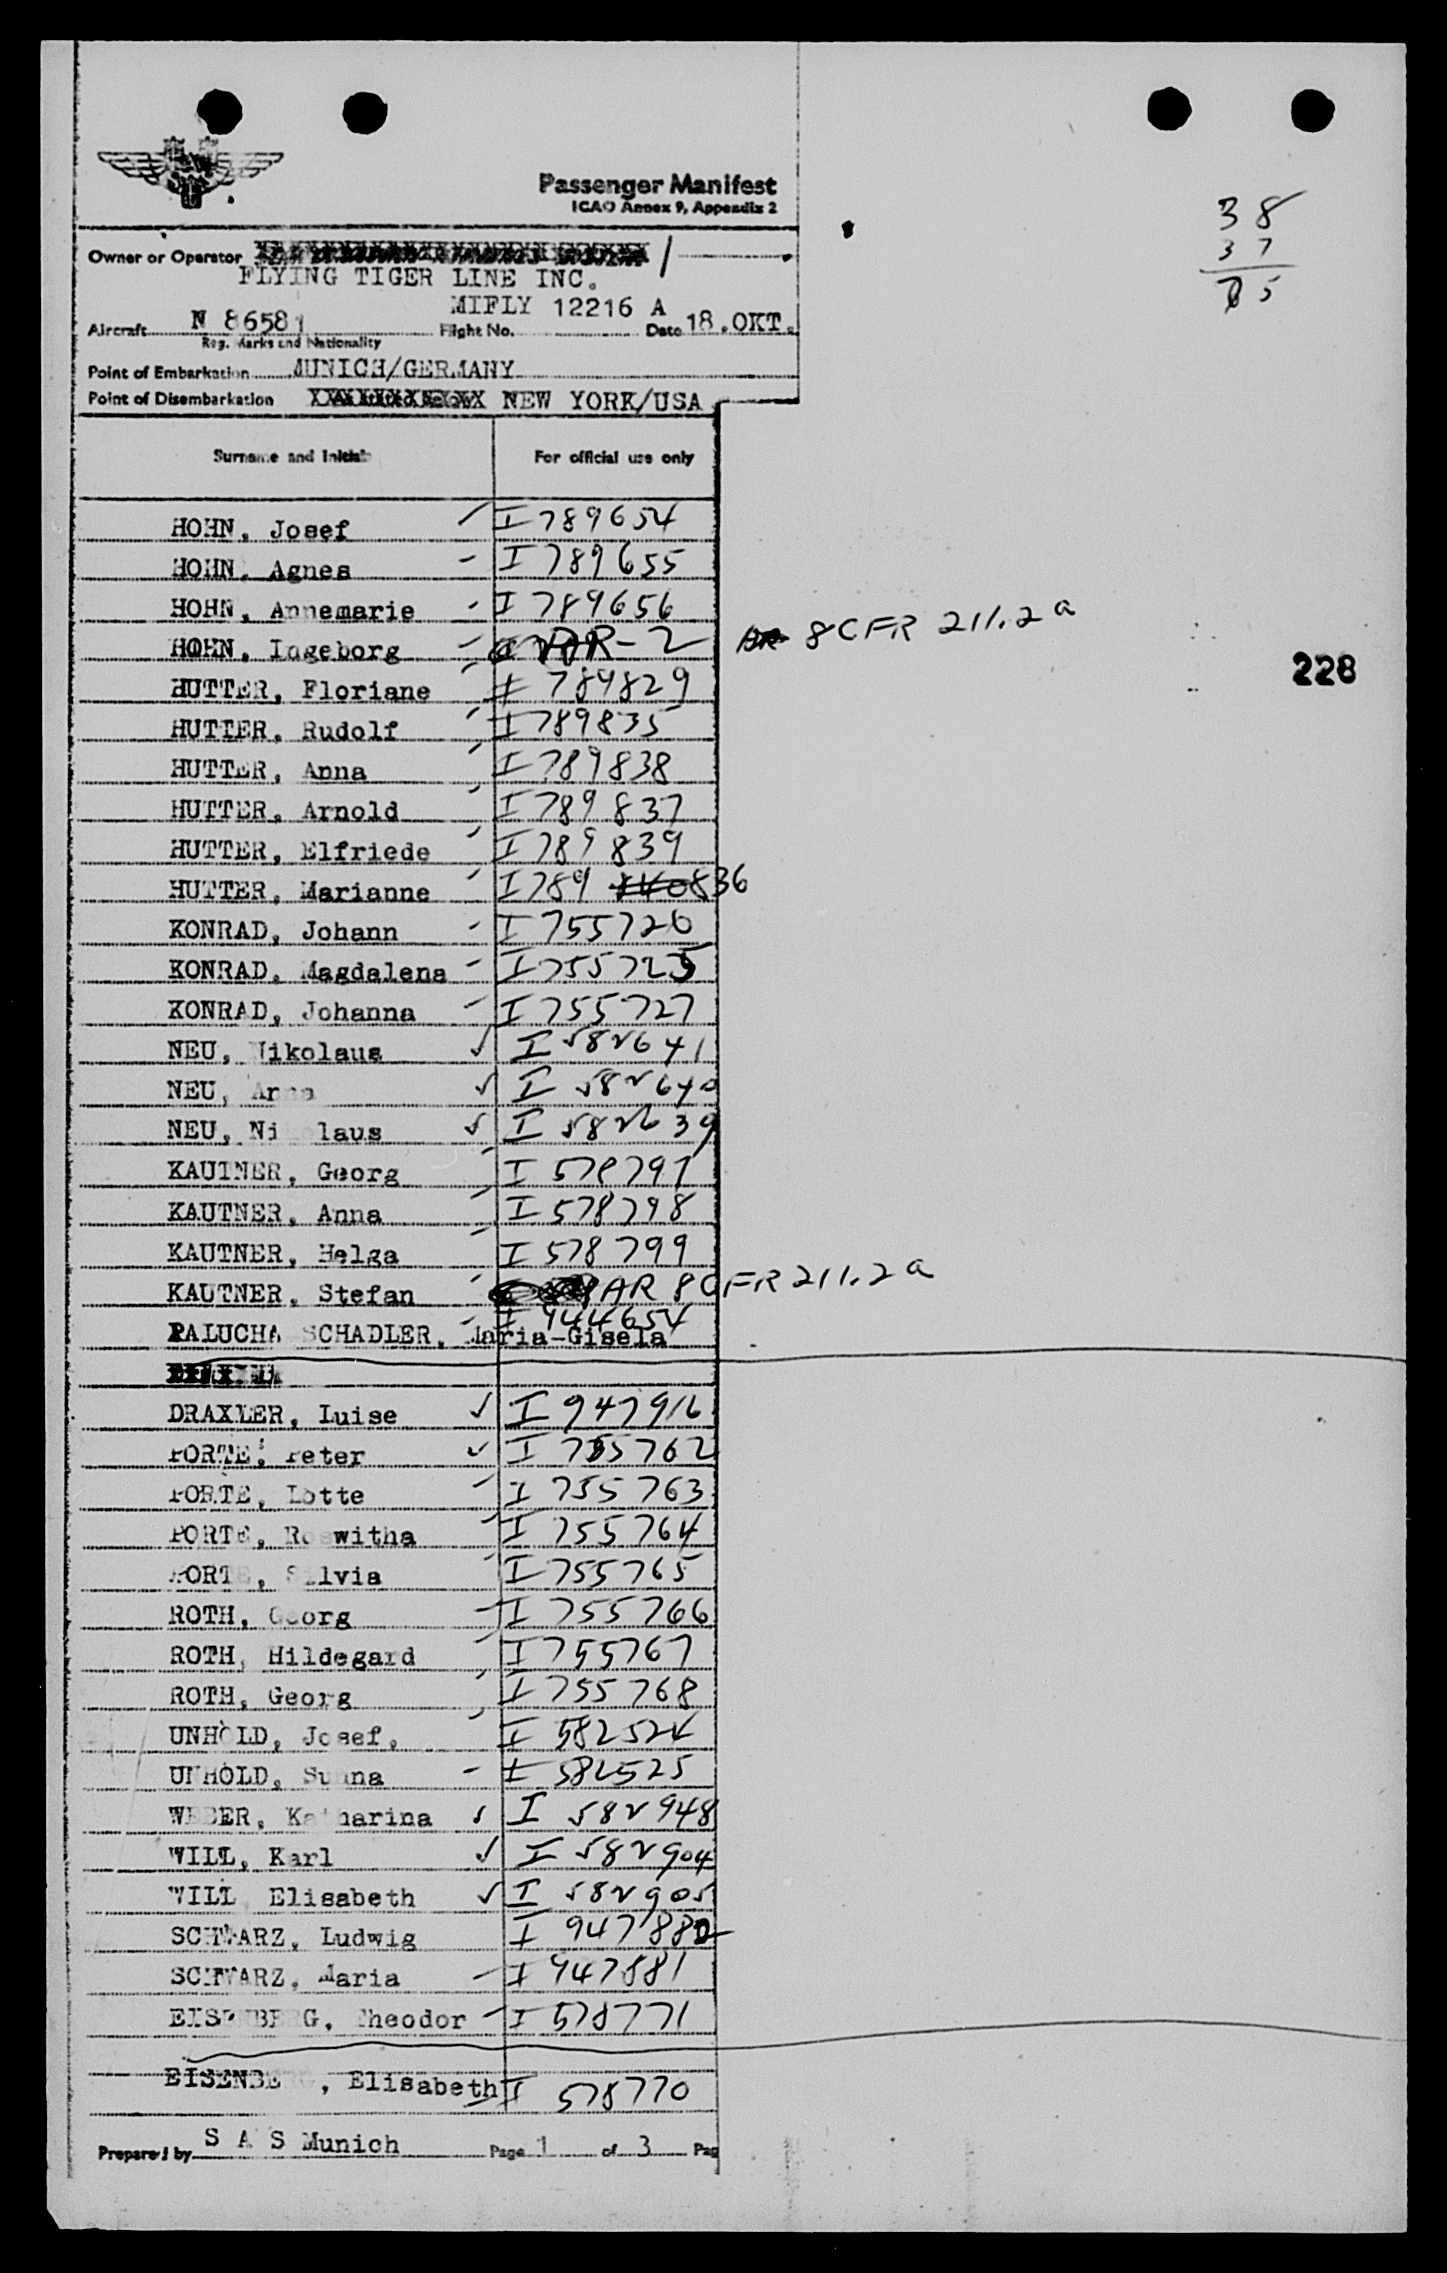 Passenger Manifest
ICAO Annex 9, Appendix 2
38
37
75
Owner or Operator
FLYING TIGER LINE INC.
MIFLY 12216 A
Aircraft N 86581 Flight No. Date 18.OKT.
Reg. Marks and Nationality
Point of Embarkation MUNICH/GERMANY
Point of Disembarkation NEW YORK/USA
Surname and Initials For official use only
HOHN, Josef I 789654
HOHN, Agnes I 789655
HOHN, Annemarie I 789656
HOHN, Ingeborg AR-2 8CFR 211.2a
228
HUTTER, Floriane I 789829
HUTTER, Rudolf I 789835
HUTTER, Anna I 789838
HUTTER, Arnold I 789837
HUTTER, Elfriede I 789839
HUTTER, Marianne I 789 836
KONRAD, Johann I 755726
KONRAD, Magdalena I 755725
KONRAD, Johanna I 755727
NEU, Nikolaus I 582641
NEU, Anna I 582640
NEU, Nikolaus I 582639
KAUTNER, Georg I 578797
KAUTNER, Anna I 578798
KAUTNER, Helga I 578799
KAUTNER, Stefan AR 8CFR 211.2a
I 944654
PALUCHA SCHADLER, Maria-Gisela
DRAXLER, Luise I 947916
PORTE, Peter I 755762
PORTE, Lotte I 755763
PORTE, Roswitha I 755764
PORTE, Silvia I 755765
ROTH, Georg I 755766
ROTH, Hildegard I 755767
ROTH, Georg I 755768
UNHOLD, Josef, I 582524
UNHOLD, Sunna I 582525
WEBER, Katharina I 582948
WILL, Karl I 582904
WILL Elisabeth I 582905
SCHWARZ, Ludwig I 947882
SCHWARZ, Maria I 947881
EISENBERG, Theodor I 578771
EISENBERG, Elisabeth I 578770
Prepared by S A S Munich Page 1 of 3 Pag